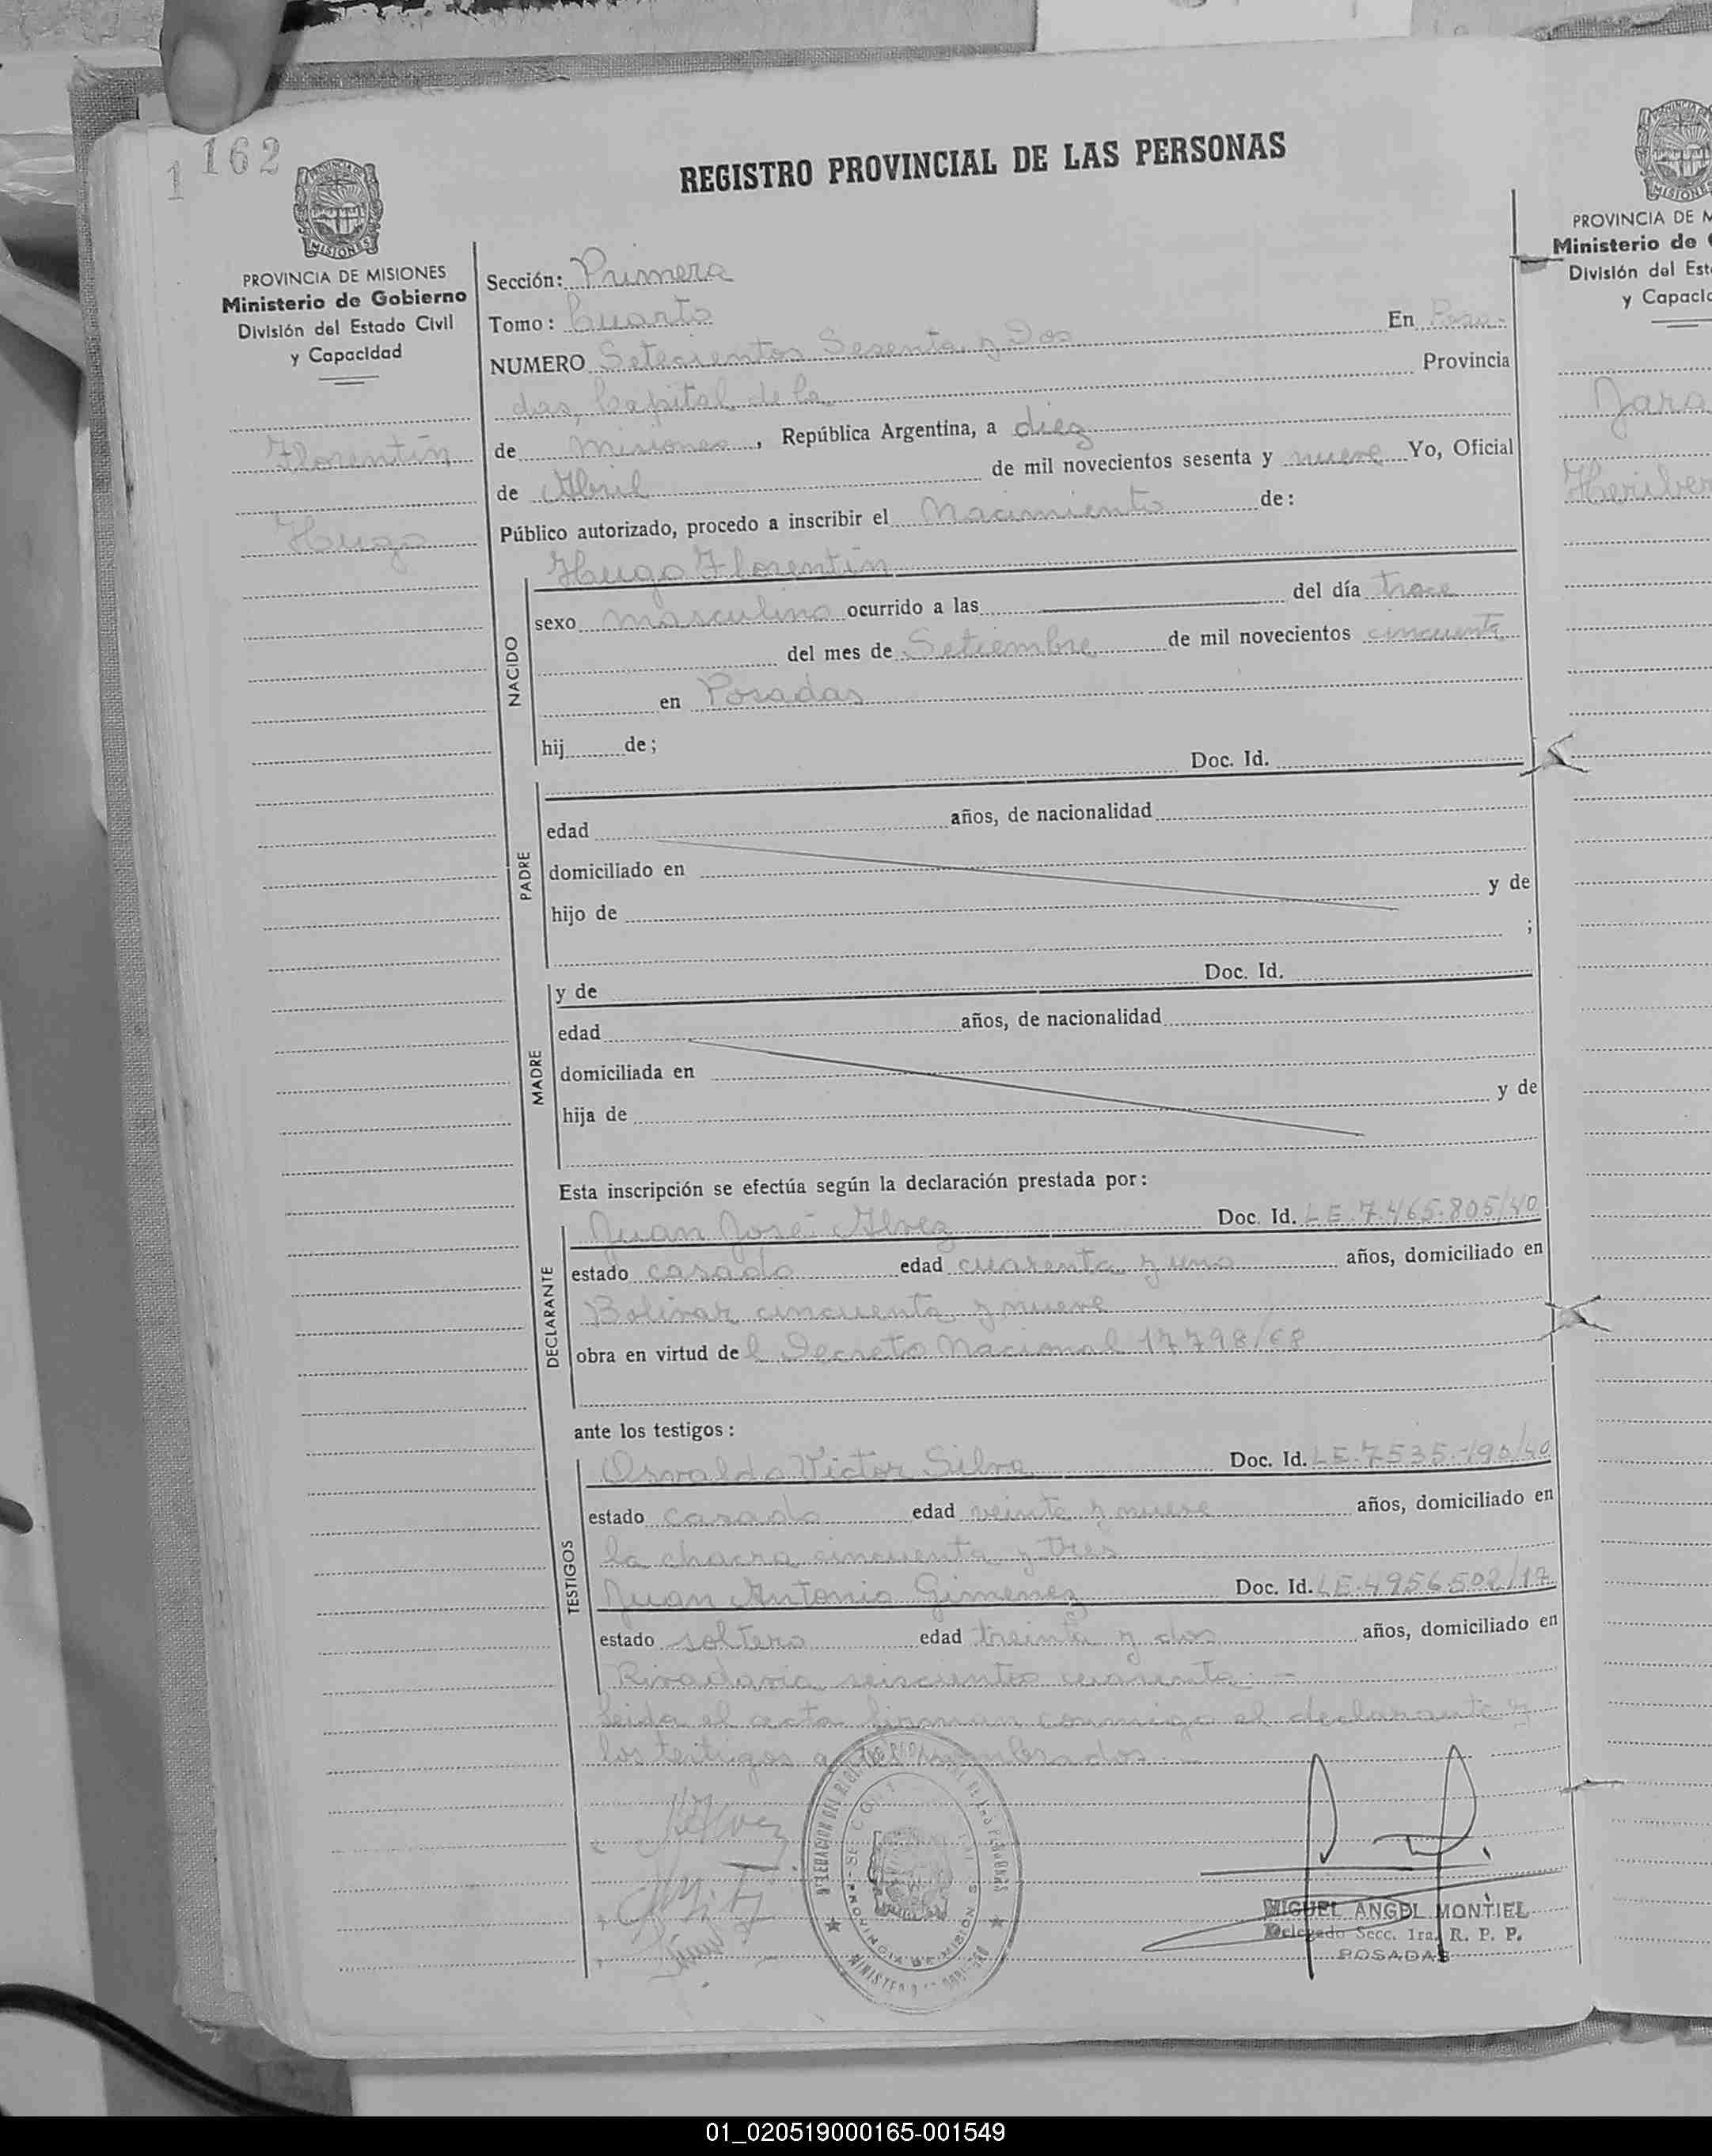 1 162
REGISTRO PROVINCIAL DE LAS PERSONAS
PROVINCIA DE MISIONES
Ministerio de Gobierno
División del Estado Civil
y Capacidad
Florentín
Hugo
Sección: Primera
Tomo: Cuarto
NUMERO Setecientos Sesenta y Dos En Posa-
das, Capital de la Provincia
de Misiones, República Argentina, a diez
de Abril de mil novecientos sesenta y nueve Yo, Oficial
Público autorizado, procedo a inscribir el Nacimiento de:
Hugo Florentín
NACIDO
sexo masculino ocurrido a las del día trece
del mes de Setiembre de mil novecientos cincuenta
en Posadas
hij de;
PADRE
Doc. Id.
edad años, de nacionalidad
domiciliado en
hijo de y de
;
MADRE
y de Doc. Id.
edad años, de nacionalidad
domiciliada en
hija de y de
Esta inscripción se efectúa según la declaración prestada por:
DECLARANTE
Juan José Alvez Doc. Id. LE 7.465.805/40
estado casado edad cuarenta y uno años, domiciliado en
Bolivar cincuenta y nueve
obra en virtud del Decreto Nacional 17798/68
ante los testigos:
TESTIGOS
Osvaldo Victor Silva Doc. Id. LE.7535.190/40
estado casado edad veinte y nueve años, domiciliado en
la chacra cincuenta y tres
Juan Antonio Gimenez Doc. Id. LE.4956502/17
estado soltero edad treinta y dos años, domiciliado en
Rivadavia seiscientos cuarenta.-
Leida el acta firman conmigo el declarante y
los testigos nombrados.-
Alvez
PROVINCIA DE MISIONES
MIGUEL ANGEL MONTIEL
Delegado Secc. 1ra. R. P. P.
POSADAS
PROVINCIA DE M
Ministerio de G
División del Est
y Capacid
Jara
Heriber
01_020519000165-001549